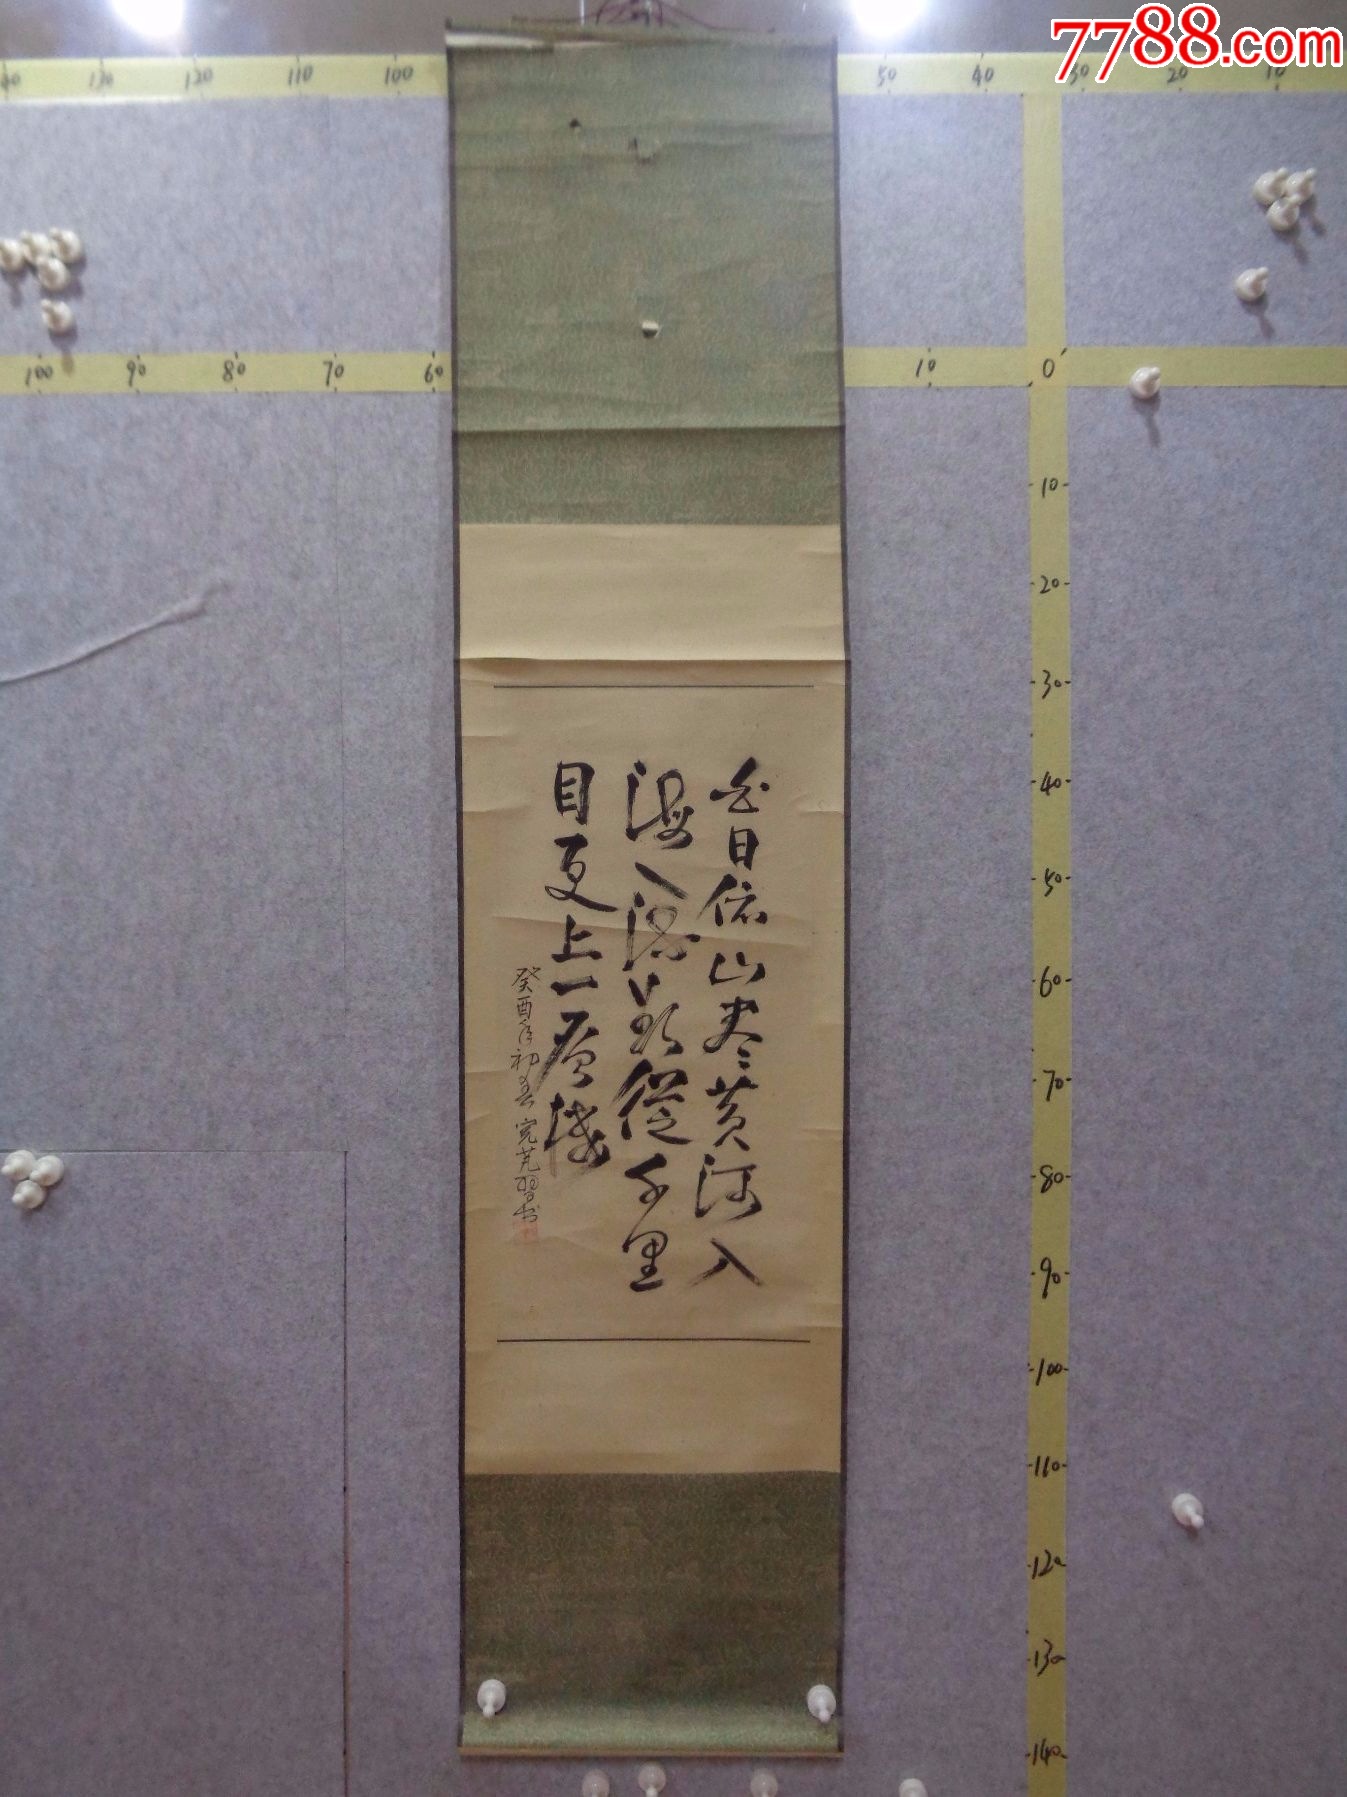 7788.com
130 120 110 100 50 40 30 20 10
100 90 80 70 60 10 0
10
20
30
40
50
60
70
80
90
100
110
120
130
140
白日依山尽黄河入
海流欲從千里
目更上一层楼
癸酉年初春 習书